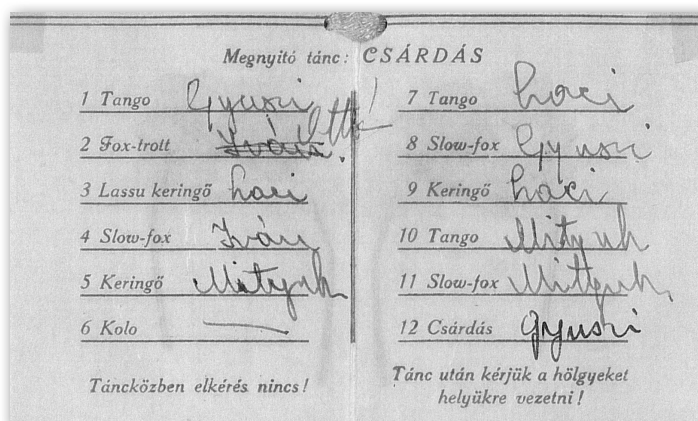 Megnyitó tánc: CSÁRDÁS
1 Tango Gyuszi
2 Fox-trott Iván
3 Lassu keringő Laci
4 Slow-fox Iván
5 Keringő Mityuk
6 Kolo —
Táncközben elkérés nincs!
7 Tango Laci
8 Slow-fox Gyuszi
9 Keringő Laci
10 Tango Mityuk
11 Slow-fox Mityuk
12 Csárdás Gyuszi
Tánc után kérjük a hölgyeket
helyükre vezetni!